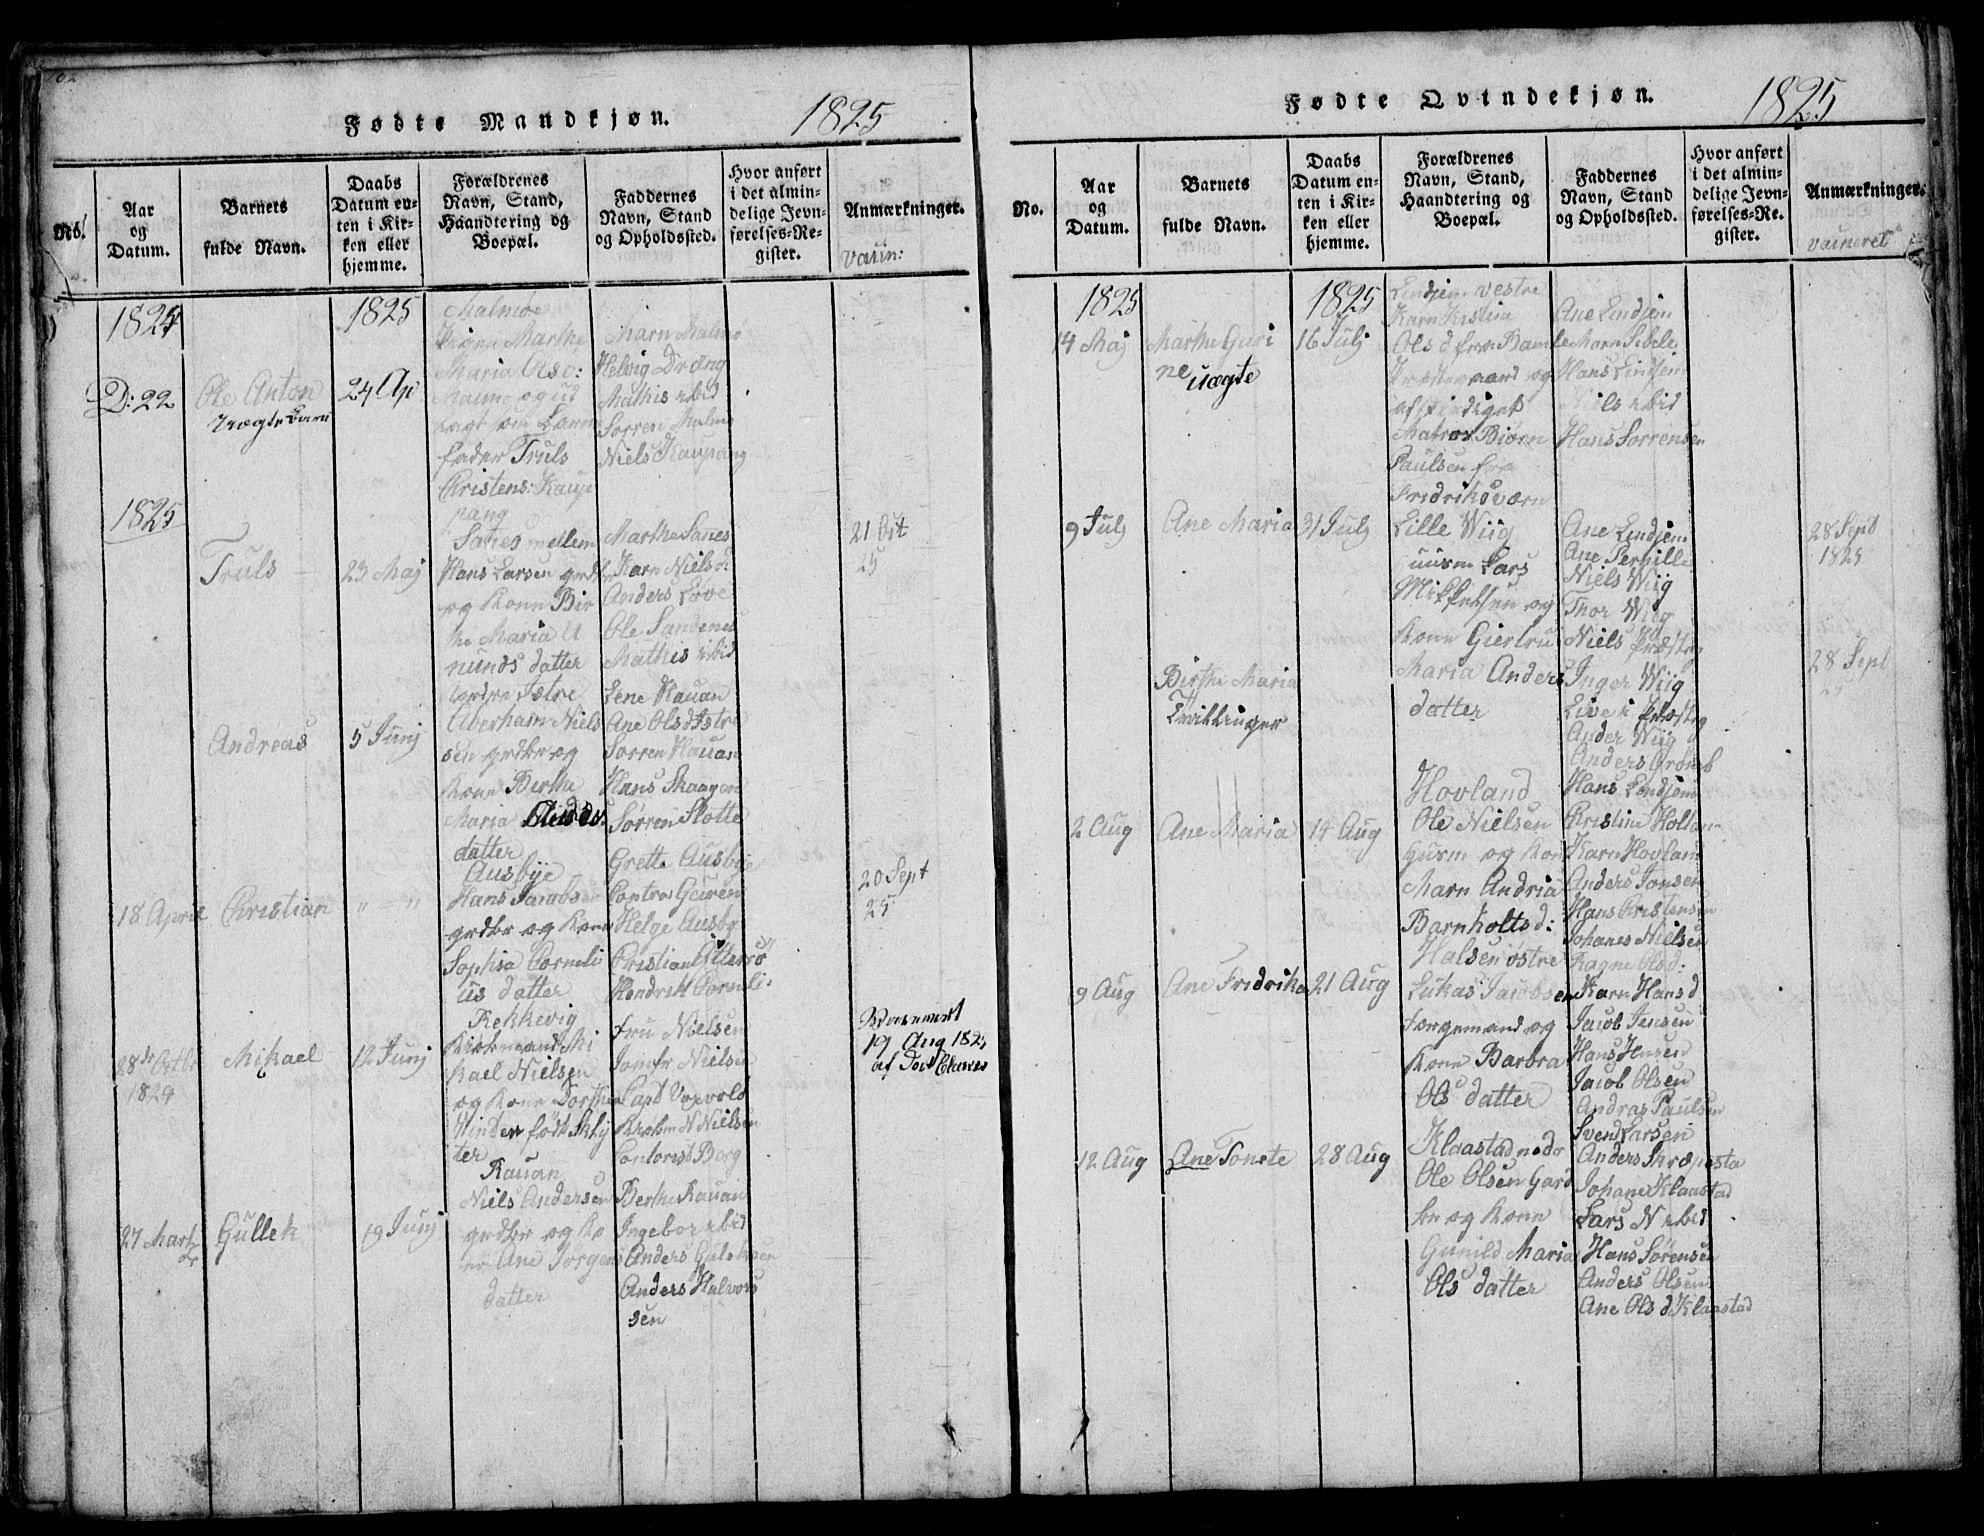 Fødte Mandkjøn.
1825
No.
Aar
og
Datum.
Barnets
fulde Navn.
Daabs
Datum en-
ten i Kir-
ken eller
hjemme.
Forældrenes
Navn, Stand,
Haandtering og
Boepæl.
Faddernes
Navn, Stand
og Opholdssted.
Hvor anført
i det almin-
delige Jevn-
førelses-Re-
gister.
Anmærkninger.
Vaun:
1824
D: 22
Ole Anton
Uægte Barn
1825
24 Ap
Malmøe
Pigen Marthe
Maria Olsd:
Malmo og ud
lagt som Barne
fader Truls
Kristens: Kaup
pang
Marn Malmo
Helvig Dræng
Mathis ibid
Sørren Malmo
Niels Kaupang
1825
Truls
23 Maj
Sanes mellem
Hans Larsen grdbr
og Kone Bir
the Maria A
nunds datter
Marthe Sanes
Karn Niels d:
Anders Løve
Ole Sandenes
Mathis ibid
21 Oct
25
Andreas
5 Junj
Istre
Aberham Niels
sen grdbr og
Kone Birthe
Maria
datter
Lene Rauan
Ane Olsd Istre
Sørren Rauan
Hans Skaagen
Sørren Slotte
18 April
Christian
" — "
Ausbye
Hans Jacobsen
grdbr og Kone
Sophia Corneli
us datter
Grette Ausbye
Helge Ausby
Cristian
Hendrik Corneli:
20 Sept
25
28de Octbr
1824
Mikael
12 Junj
Rekkevig
Mi
kael Nielsen
og Kone Dorthea
Winder født Skly
ter
fru Nielsen
Jomfr Nielsen
Capt Voxvold
N Nielsen
Contorist Borg
19 Aug 1825
27 Marts
Gullek
19 Junj
Rauan
Niels Andersen
grdbr og Ko
ne Ane Jorgens
datter
Berthe Rauan
Ingebor ibid
Anders Guleksen
Anders Halvors
sen
Fødte Qvindekjøn.
1825
No.
Aar
og
Datum.
Barnets
fulde Navn.
Daabs
Datum en-
ten i Kir-
ken eller
hjemme.
Forældrenes
Navn, Stand,
Haandtering og
Boepæl.
Faddernes
Navn, Stand
og Opholdssted.
Hvor anført
i det almin-
delige Jevn-
førelses-Re-
gister.
Anmærkninger.
vaineret
1825
14 Maj
Marthe Guri
ne uægte
1825
16 Julj
Lindjem vestre
Karn Kistine
Ols d fra Bamle
og
Matros Biørn
Paulsen fra
Fridriksværn
Ane Lindjem
Marn Sibele
Hans Lindjem
Niels ibid
Hans Sørrensen
9 Julj
Ane Maria
31 Julj
Birthe Maria
Tvillinger
Lille Wiig
Lars
Mikkelsen og
Kone Giertru
Maria Anders
datter
Ane Lindjem
Ane Pernille
Niels Wiig
Thor Wiig
Niels Præstg
Inger Wiig
Live i Præstg
Ander Wiig
Anders
Hans Lindjem
28 Sept
1825
28 Sept
25
2 Aug
Ane Maria
14 Aug
Hovland
Ole Nielsen
Husm og Kon
Marn Andria
Barnholts d:
Kristine Hollan
Karn Hovland
Anders Jonsen
Hans Cristensen
Johanes Nielsen
9 Aug
Ane Fridrika
21 Aug
Halsen østre
Lukas Jacobsen
og
Kone Barbra
Ols datter
Ragne Olsd:
Karn Hans d
Jacob Jensen
Hans Jensen
Jacob Olsen
Andras Paulsen
12 Aug
Ane Tonete
28 Aug
Klaastad nedr
Ole Olsen Gard
br og Kone
Gunild Maria
Ols datter
Svend Larsen
Anders Skræpesta
Johane Klaastad
Lars N ibid
Hans Sørensen
Anders Olsen
Ane Ols d Klaastad